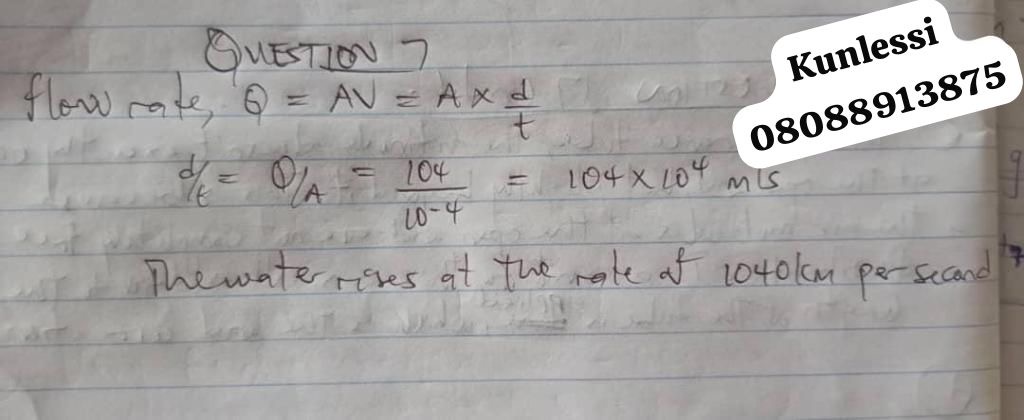 QUESTION 7
Kunlessi
08088913875
flow rate, Q = AV = A × d/t
d/t = Q/A = 104/10-4 = 104×10⁴ m/s
The water rises at the rate of 1040km per second